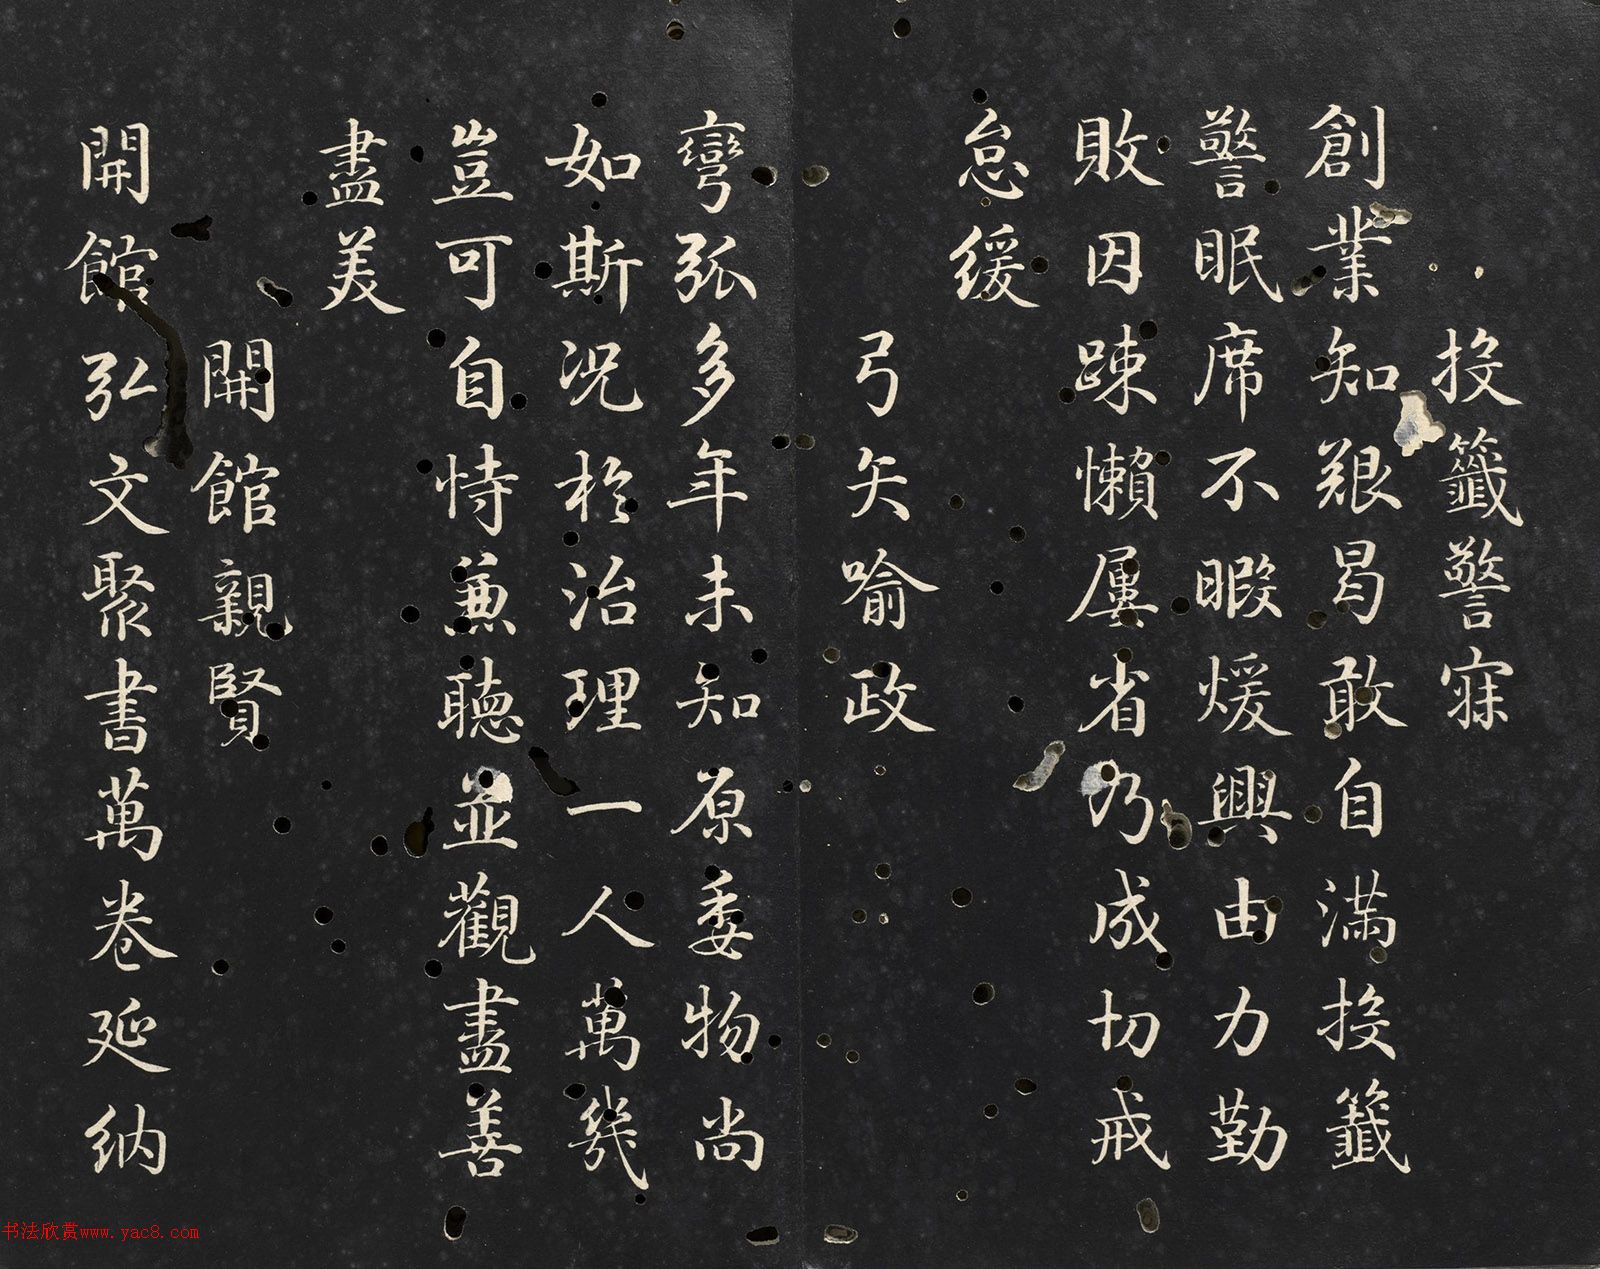 投籤警寐
創業知艱曷敢自滿投籤
警眠席不暇煖興由力勤
敗因踈懶屢省乃成切戒
怠緩
弓矢喻政
彎弧多年未知原委物尚
如斯況於治理一人萬幾
豈可自恃兼聽並觀盡善
盡美
開館親賢
開館弘文聚書萬卷延納
书法欣赏www.yac8.com